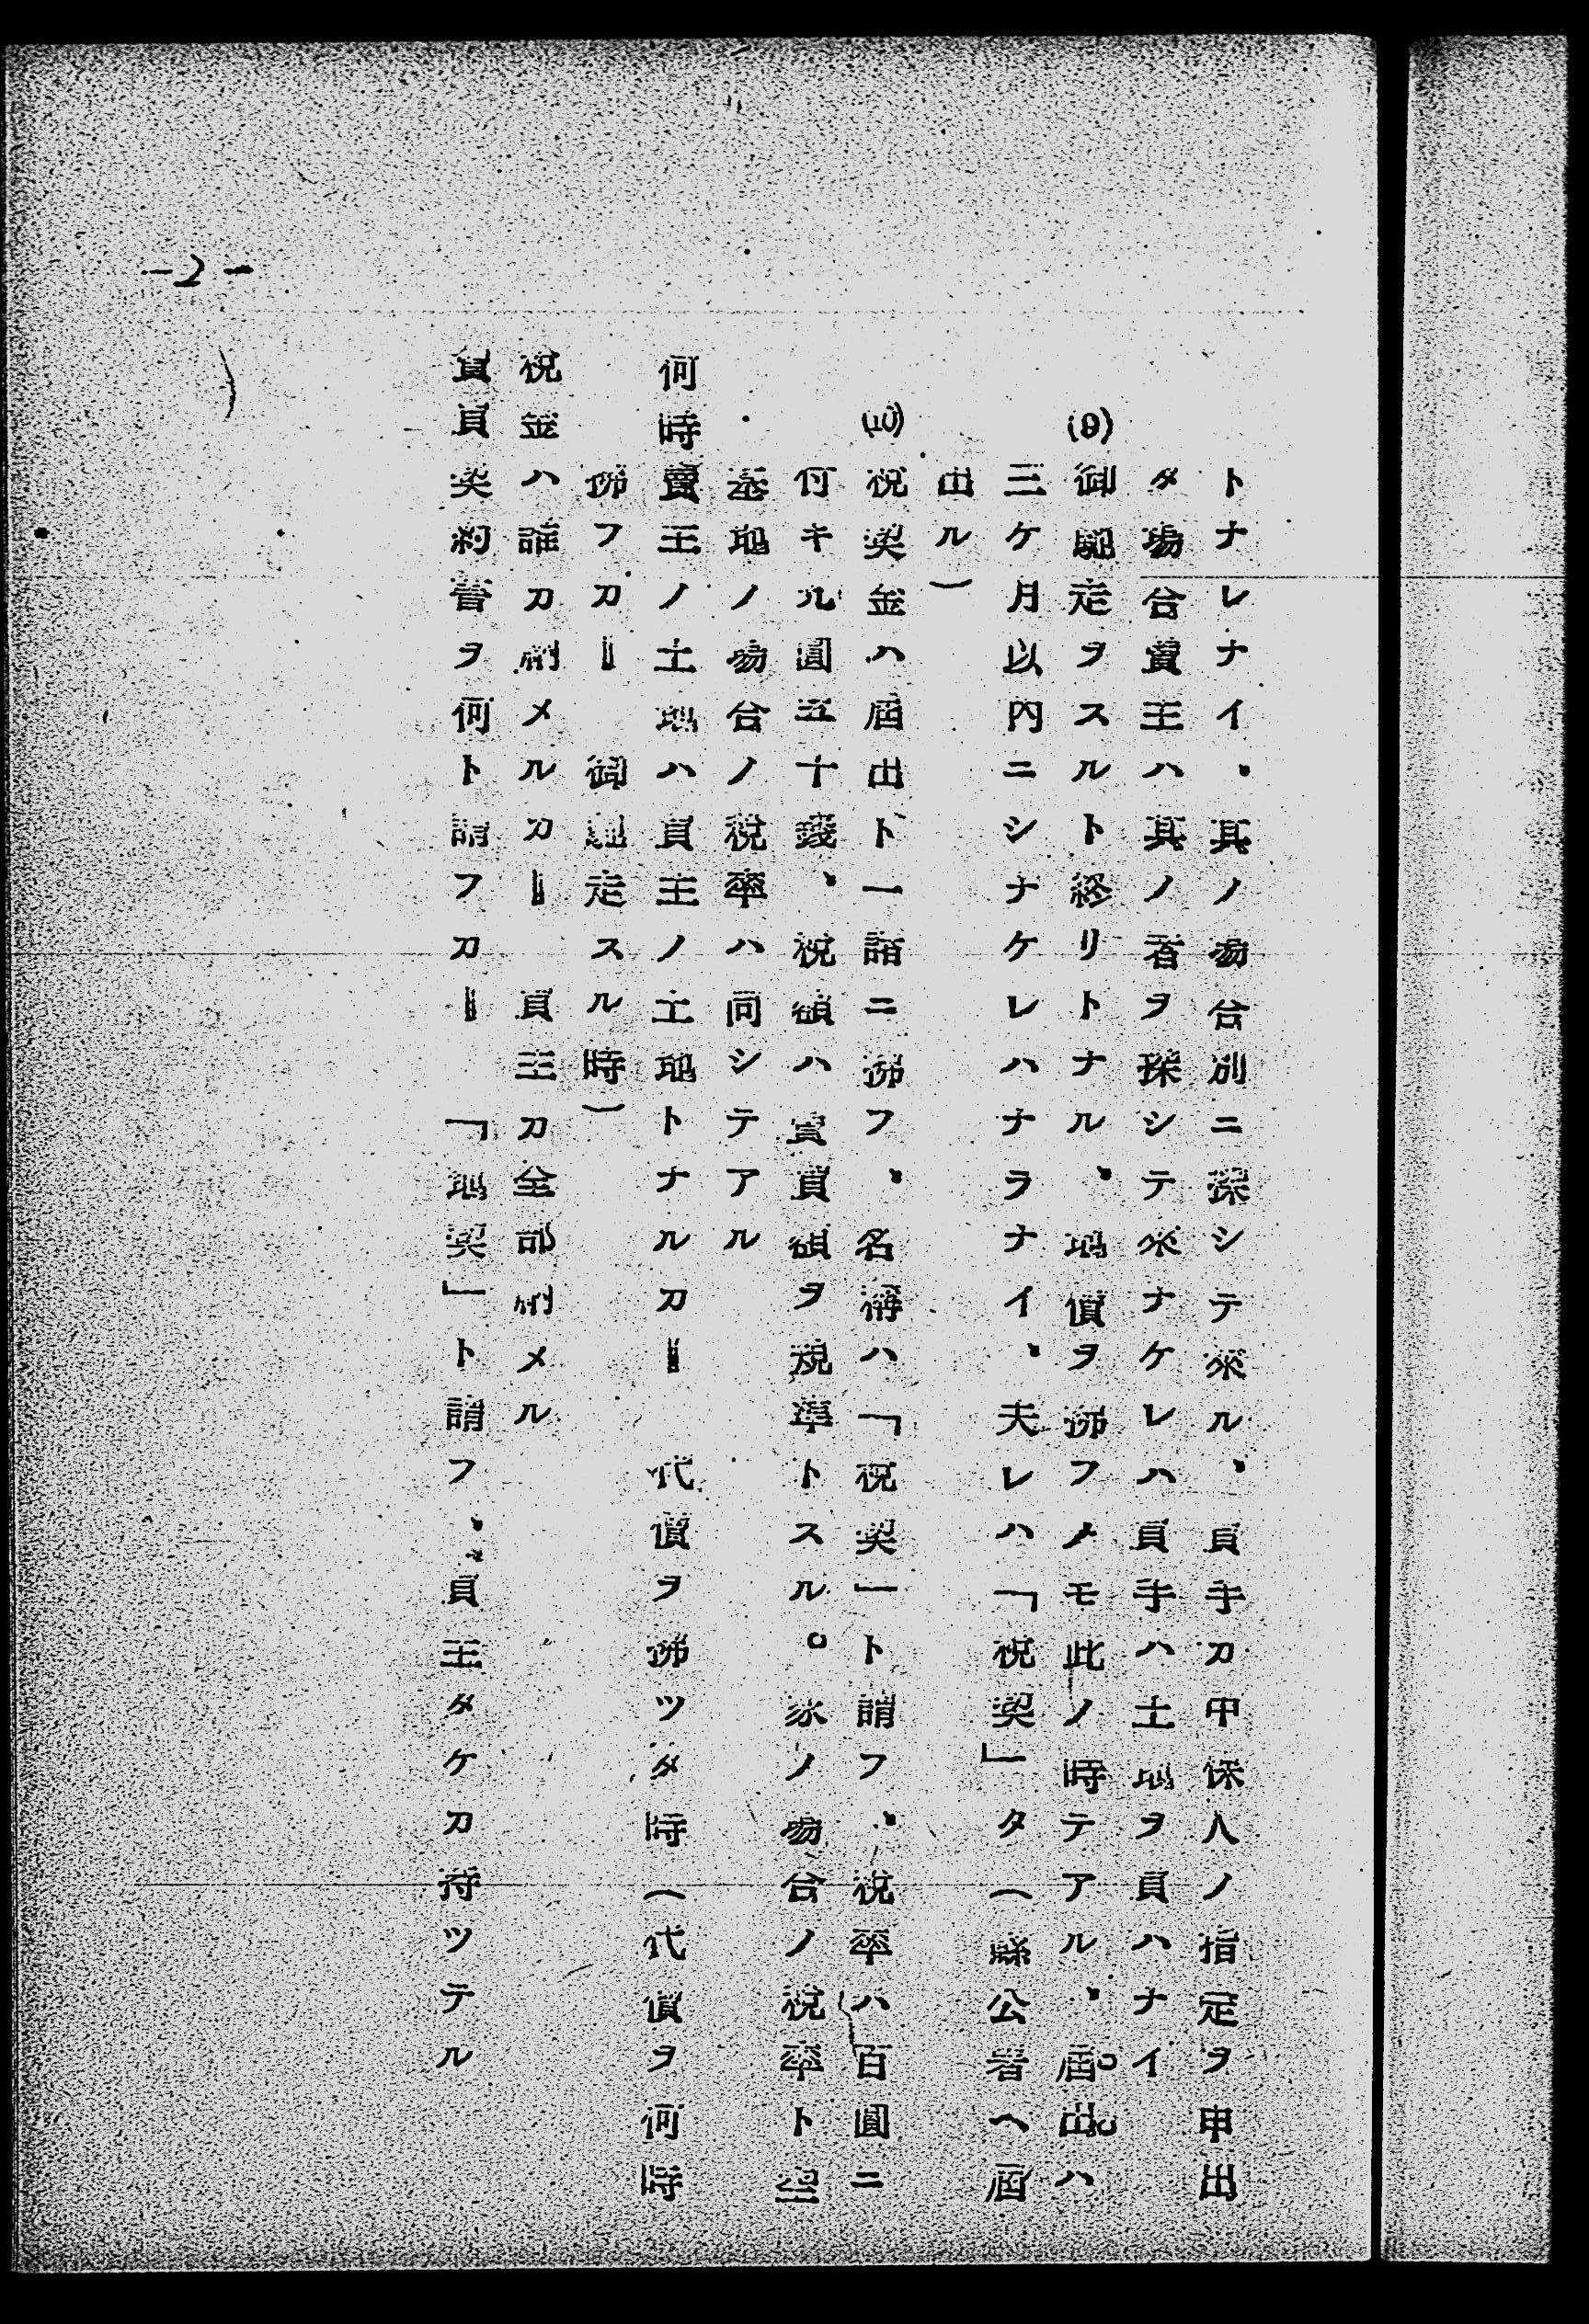 トナレナイ、其ノ場合別ニ探シテ來ル、買手カ中保人ノ指定ヲ申出
タ場合賣主ハ其ノ者ヲ探シテ來ナケレハ買手ハ土地ヲ買ハナイ
(9)御馳走ヲスルト終リトナル、地價ヲ拂フノモ此ノ時テアル、屆出ハ
三ケ月以内ニシナケレハナラナイ、夫レハ「税契」タ(縣公署ヘ屆
出ル)
(10)税契金ハ屆出ト一諸ニ拂フ、名稱ハ「税契」ト謂フ、税率ハ百圓ニ
付キ九圓五十錢、税額ハ賣買額ヲ規準トスル。家ノ場合ノ税率ト空
基地ノ場合ノ税率ハ同シテアル
何時賣主ノ土地ハ買主ノ土地トナルカ‖ 代價ヲ拂ツタ時(代價ヲ何時
拂フカ‖ 御馳走スル時)
税金ハ誰カ納メルカ‖ 買主カ全部納メル
賣買契約書ヲ何ト謂フカ‖ 「地契」ト謂フ、買主タケカ持ツテル
-2-